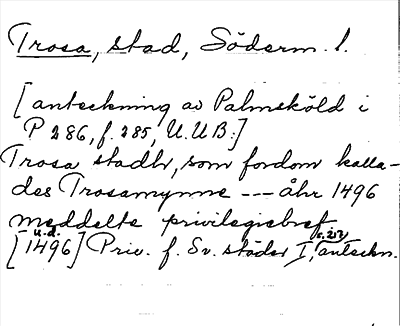 Trosa, stad, Söderm. l.
[anteckning av Palmsköld i
P 286, f. 285, U.U.B.]
Trosa stadh, som fordom kalla-
des Trosamynne --- åhr 1496
meddelte privilegiebref
u.d. s. 213
[1496] Priv. f. Sv. städer I, anteckn.